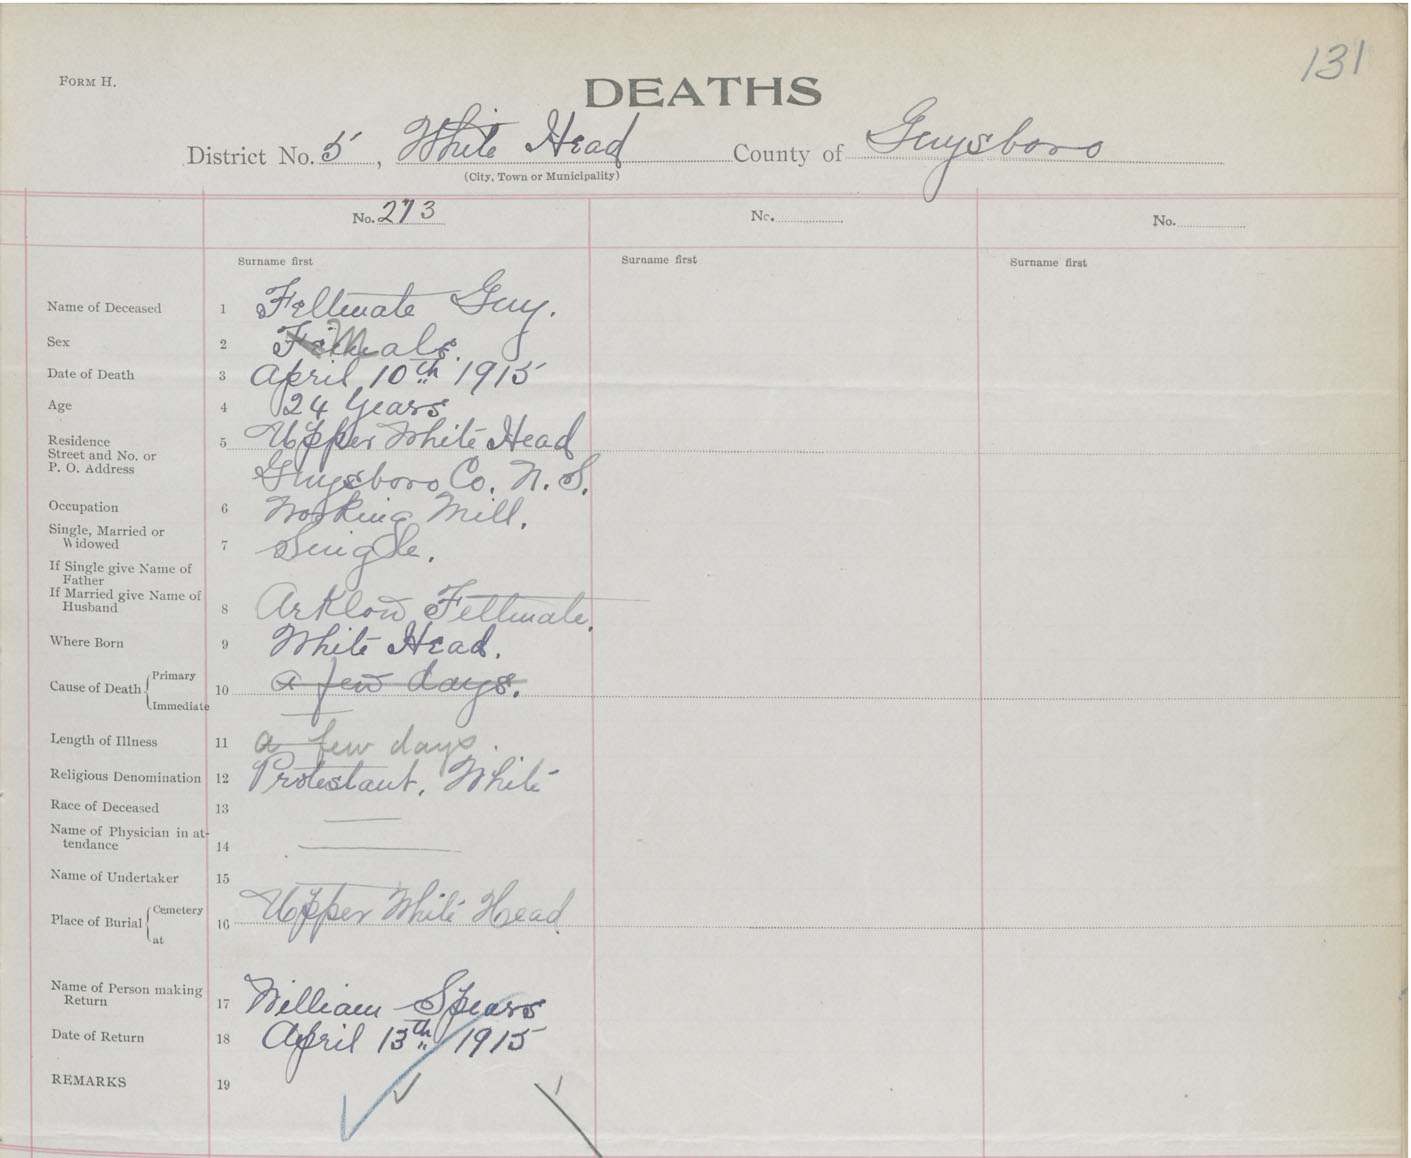 131
FORM H.
DEATHS
District No. 5, White Head County of Guysboro
(City, Town or Municipality)
No. 273 No. No.
Surname first Surname first Surname first
Name of Deceased 1 Feltmate Guy.
Sex 2 Male.
Date of Death 3 April 10th 1915
Age 4 24 Years
Residence
Street and No. or
P. O. Address
5 Upper White Head
Guysboro Co. N. S.
Occupation 6 Working Mill.
Single, Married or
Widowed
7 Single.
If Single give Name of
Father
If Married give Name of
Husband
8 Arklow Feltmate.
Where Born 9 White Head.
Cause of Death Primary
Immediate
10 a few days.
Length of Illness 11 a few days.
Religious Denomination 12 Protestant, White
Race of Deceased 13
Name of Physician in at-
tendance
14
Name of Undertaker 15
Place of Burial Cemetery
at
16 Upper White Head
Name of Person making
Return
17 William Spears
Date of Return 18 April 13th 1915
REMARKS 19